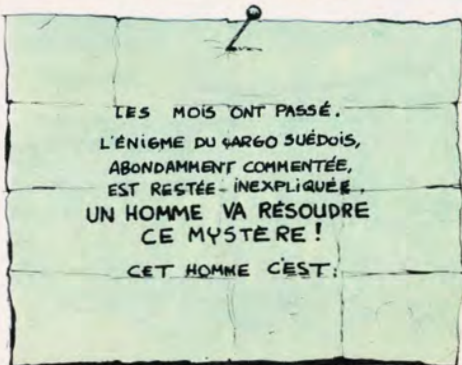 LES MOIS ONT PASSÉ.
L'ÉNIGME DU CARGO SUÉDOIS,
ABONDAMMENT COMMENTÉE,
EST RESTÉE INEXPLIQUÉE.
UN HOMME VA RÉSOUDRE
CE MYSTÈRE !
CET HOMME C'EST: